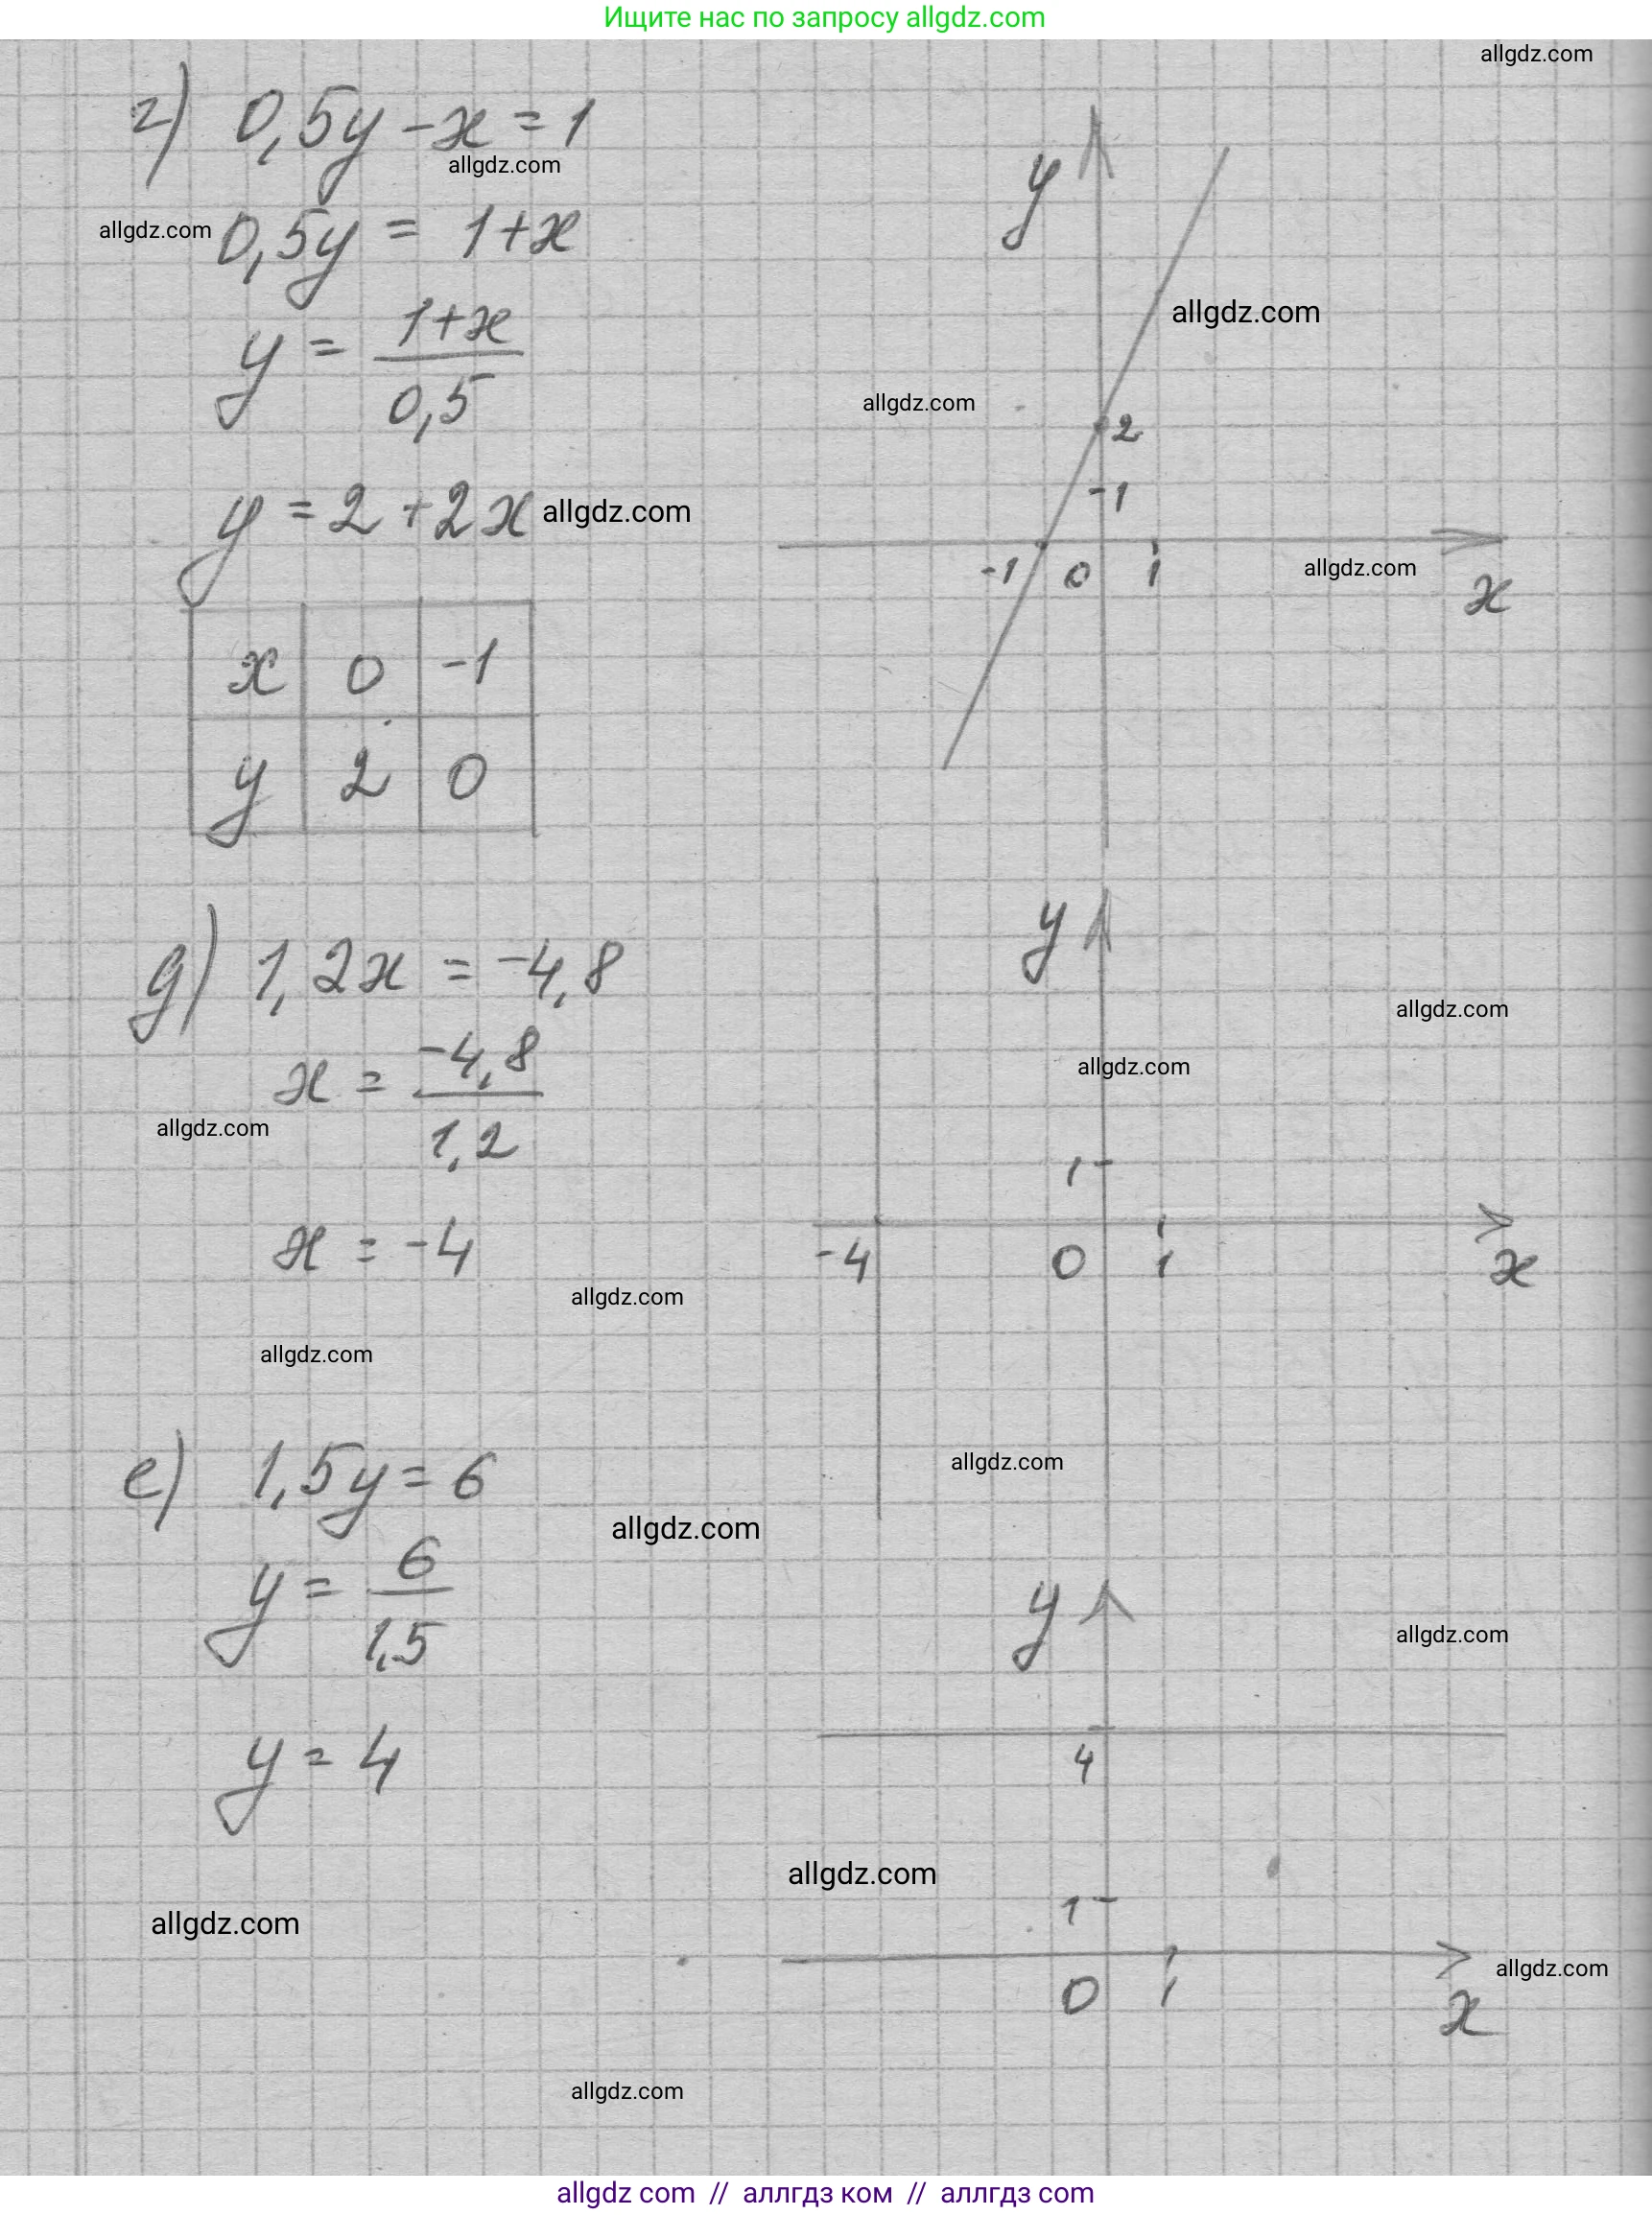 Ищите нас по запросу allgdz.com
allgdz.com
г) 0,5y - x = 1
allgdz.com
allgdz.com
0,5y = 1+x
y = 1+x / 0,5
y = 2 + 2x
allgdz.com
x 0 -1
y 2 0
y
allgdz.com
allgdz.com
2
-1
-1 0 1
allgdz.com
x
д) 1,2x = -4,8
x = -4,8 / 1,2
allgdz.com
x = -4
allgdz.com
allgdz.com
y
allgdz.com
allgdz.com
1
-4 0 1
x
allgdz.com
е) 1,5y = 6
allgdz.com
y = 6 / 1,5
y = 4
y
allgdz.com
4
allgdz.com
allgdz.com
1
0 1
allgdz.com
x
allgdz.com
allgdz com // аллгдз ком // аллгдз com